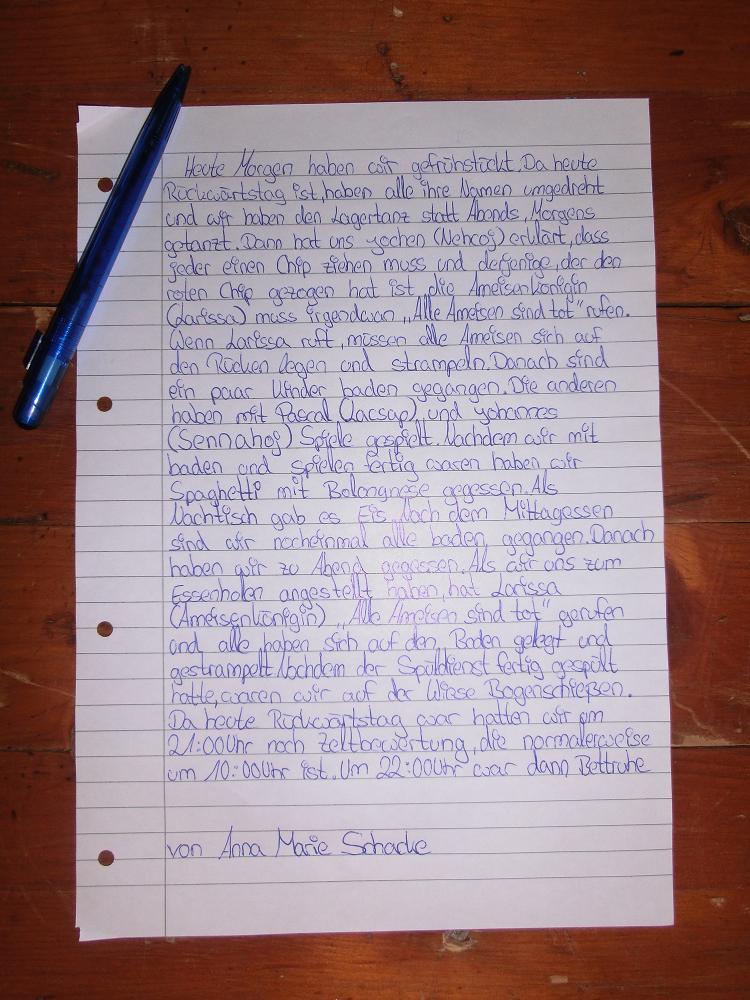 Heute Morgen haben wir gefrühstückt. Da heute
Rückwärtstag ist, haben alle ihre Namen umgedreht
und wir haben den Lagertanz statt Abends, Morgens
getanzt. Dann hat uns yochen (Nehcoj) erklärt, dass
jeder einen Chip ziehen muss und derjenige, der den
roten Chip gezogen hat ist die Ameisenkönigin
(Larissa) muss irgendwan „Alle Ameisen sind tot“ rufen.
Wenn Larissa ruft, müssen alle Ameisen sich auf
den Rücken legen und strampeln. Danach sind
ein paar Kinder baden gegangen. Die anderen
haben mit Pascal (lacsap), und yohannes
(Sennahoj) Spiele gespielt. Nachdem wir mit
baden und spielen fertig waren haben, wir
Spaghetti mit Bolongnese gegessen. Als
Nachtisch gab es Eis. Nach dem Mittagessen
sind wir nocheinmal alle baden gegangen. Danach
haben wir zu Abend gegessen. Als wir uns zum
Essenholen angestellt haben, hat Larissa
(Ameisenkönigin) „Alle Ameisen sind tot“ gerufen
und alle haben sich auf den Boden gelegt und
gestrampelt. Nachdem der Spüldienst fertig gespült
hatte, waren wir auf der Wiese Bogenschießen.
Da heute Rückwärtstag war hatten wir um
21:00Uhr noch Zeltbewertung, die normalerweise
um 10:00Uhr ist. Um 22:00Uhr war dann Bettruhe
von Anna Marie Schacke